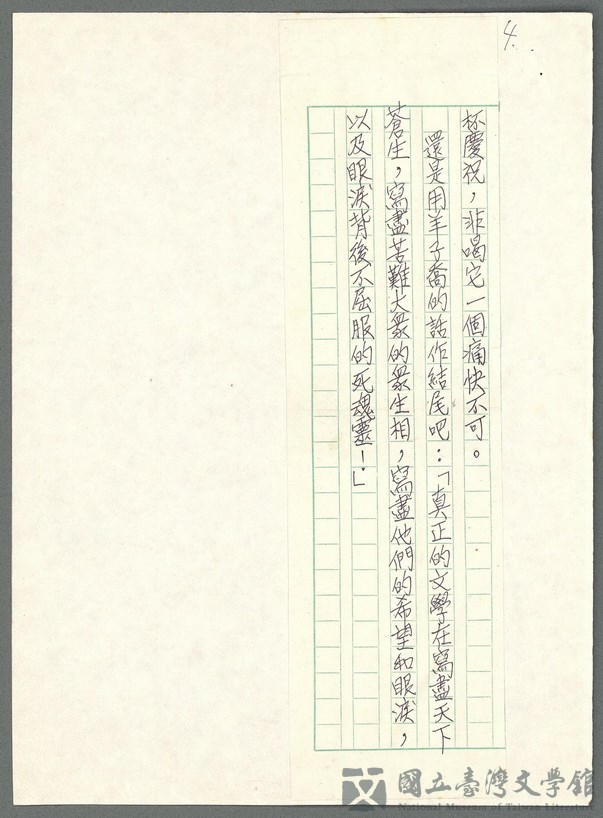 4.
杯慶祝，非喝它一個痛快不可。
還是用羊子喬的話作結尾吧：「真正的文學在寫盡天下
蒼生，寫盡苦難大衆的衆生相，寫盡他們的希望和眼淚，
以及眼淚背後不屈服的死魂靈！」
國立臺灣文學館
National Museum of Taiwan Literature